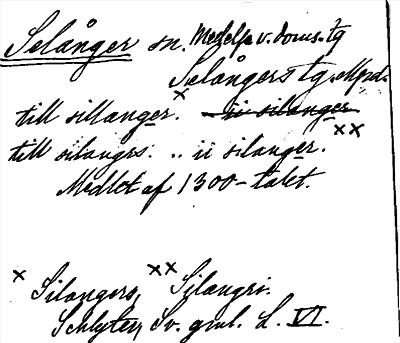 Selånger sn. Medelpa v. Doms. tg
Selångers tg. Mpd.
till sillanger. x ii silanger
till silangrs. .. ii silanger. xx
Medlet af 1300-talet.
x Silangers, xx Silangri.
Schlyter, Sv. gml. L. VI.